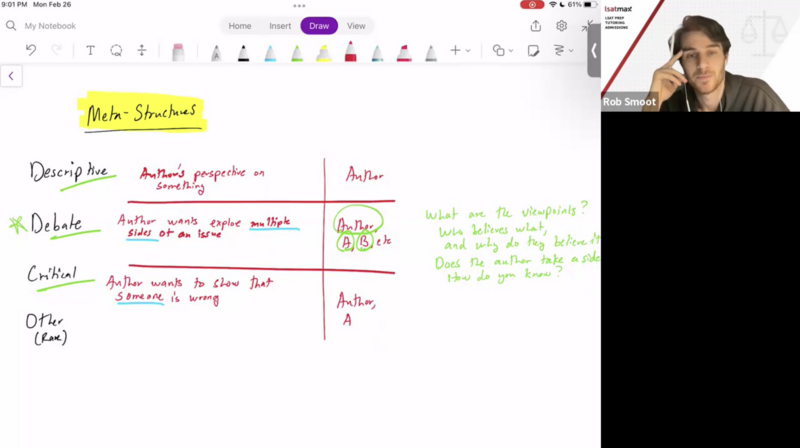 9:01 PM Mon Feb 26
61%
My Notebook
Home Insert Draw View
lsatmax
LSAT PREP
TUTORING
ADMISSIONS
Rob Smoot
Meta-Structures
Descriptive
Author's perspective on
something
Author
Debate
Author wants exploe multiple
sides of an issue
Author,
A, B, etc
Critical
Author wants to show that
someone is wrong
Author,
A
Other
(Rare)
What are the viewpoints?
Who believes what,
and why do they believe it
Does the author take a side
How do you know?